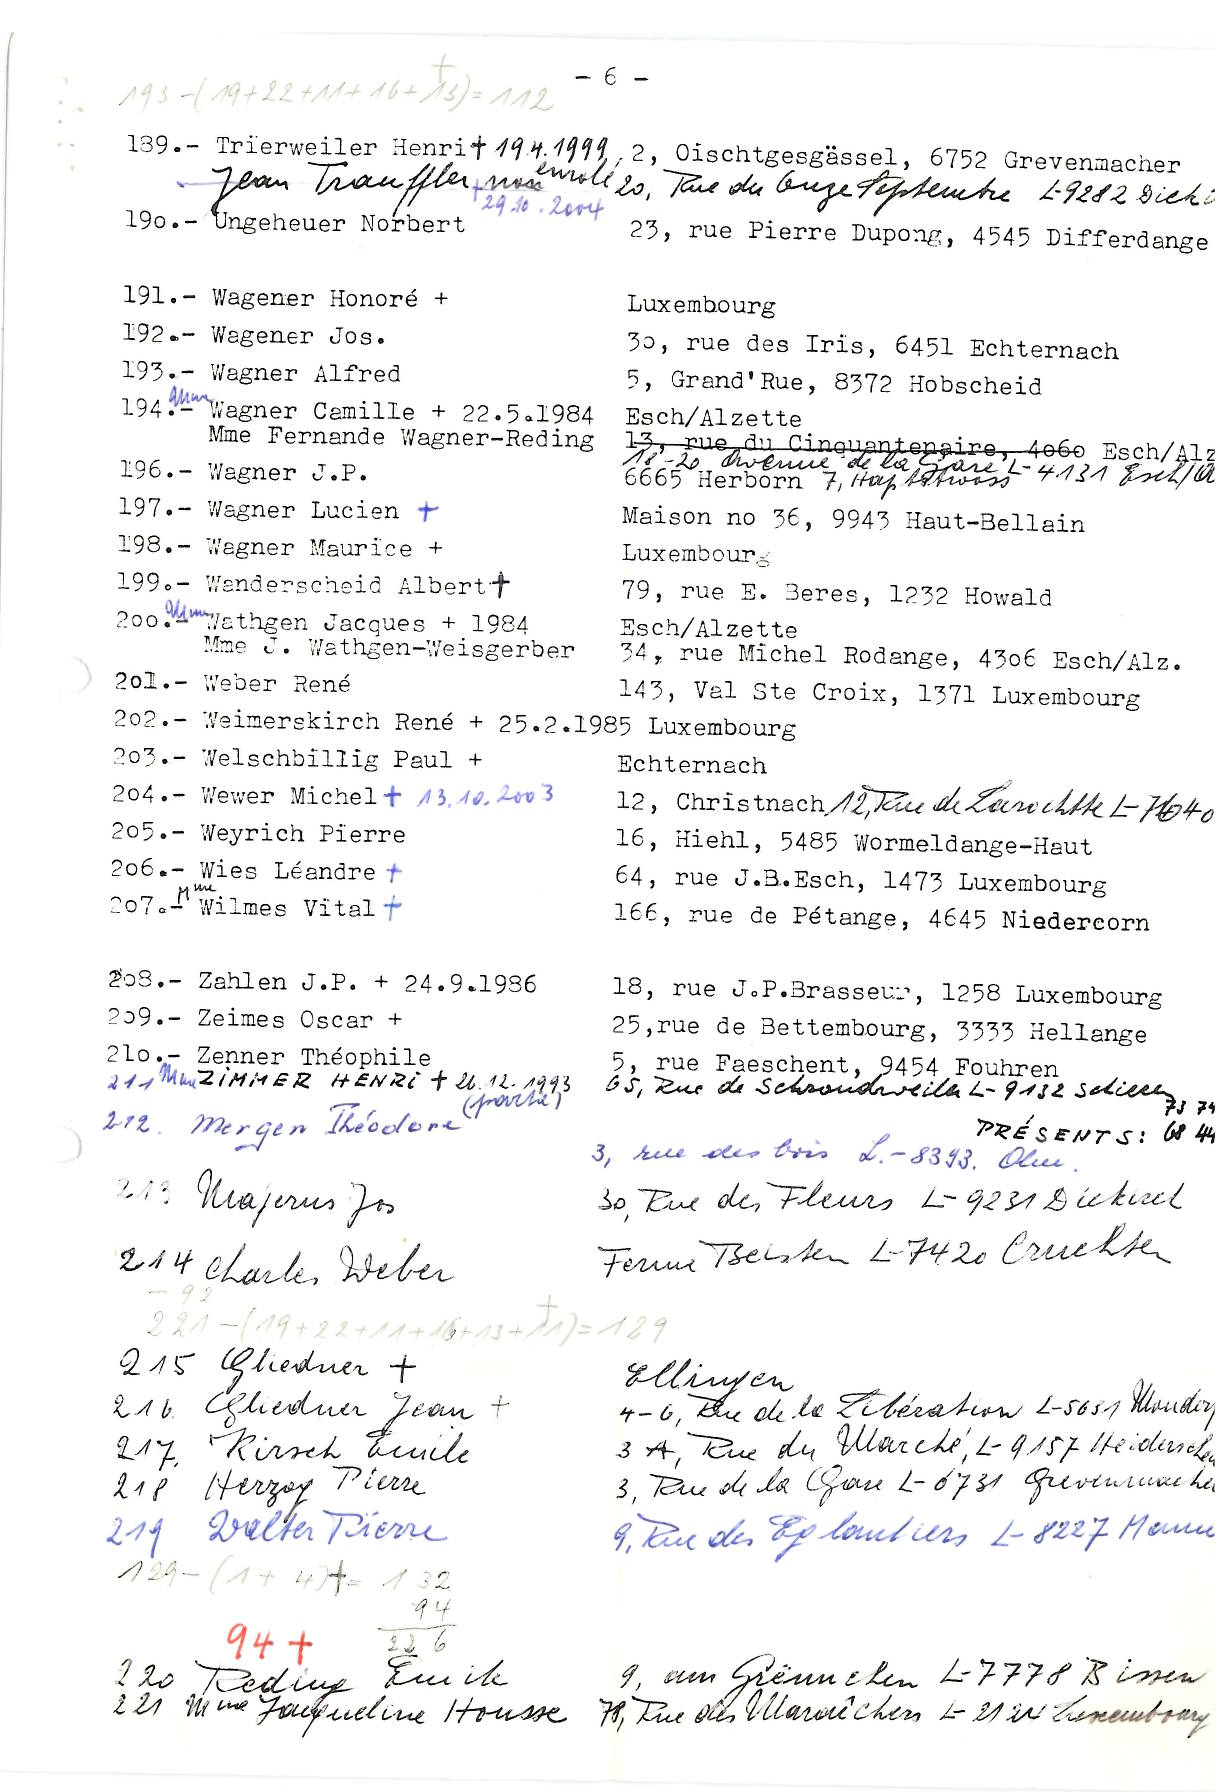 - 6 -
193 - (19+22+11+16+13) = 112
189.- Trierweiler Henri † 19.4.1999, 2, Oischtgesgässel, 6752 Grevenmacher
Jean Trauffler, non enrolé 20, Rue du Onze Septembre L-9282 Dieki
† 29.10.2004
190.- Ungeheuer Norbert 23, rue Pierre Dupong, 4545 Differdange
191.- Wagener Honoré + Luxembourg
192.- Wagener Jos. 30, rue des Iris, 6451 Echternach
193.- Wagner Alfred 5, Grand'Rue, 8372 Hobscheid
194.- Mme Wagner Camille + 22.5.1984 Esch/Alzette
Mme Fernande Wagner-Reding 13, rue du Cinquantenaire, 4060 Esch/Alz
18-20 Avenue de la Gare L-4131 Esch/A
196.- Wagner J.P. 6665 Herborn 7, Haptstrooss
197.- Wagner Lucien † Maison no 36, 9943 Haut-Bellain
198.- Wagner Maurice + Luxembourg
199.- Wanderscheid Albert † 79, rue E. Beres, 1232 Howald
200.- Mme Wathgen Jacques + 1984 Esch/Alzette
Mme J. Wathgen-Weisgerber 34, rue Michel Rodange, 4306 Esch/Alz.
201.- Weber René 143, Val Ste Croix, 1371 Luxembourg
202.- Weimerskirch René + 25.2.1985 Luxembourg
203.- Welschbillig Paul + Echternach
204.- Wewer Michel † 13.10.2003 12, Christnach 12, Rue de Larochtte L-7640
205.- Weyrich Pierre 16, Hiehl, 5485 Wormeldange-Haut
206.- Wies Léandre † 64, rue J.B.Esch, 1473 Luxembourg
207.- Mme Wilmes Vital † 166, rue de Pétange, 4645 Niedercorn
208.- Zahlen J.P. + 24.9.1986 18, rue J.P.Brasseur, 1258 Luxembourg
209.- Zeimes Oscar + 25,rue de Bettembourg, 3333 Hellange
210.- Zenner Théophile 5, rue Faeschent, 9454 Fouhren
211 Mme ZIMMER HENRI † 26.12.1993 65, Rue de Schrondweiler L-9132 Schieren
73 74
212. Mergen Théodore PRÉSENTS: 68 44
3, rue des bois L.-8393. Olm.
213 Majerus Jos 30, Rue des Fleurs L-9231 Diekirch
214 Charles Weber Ferme Beisten L-7420 Cruchten
- 92
221 - (19+22+11+16+13+11) = 129
215 Gliedner + Ellingen
216 Gliedner Jean + 4-6, Rue de la Libération L-5631 Mondorf
217. Kirsch Emile 3 A, Rue du Marché, L-9157 Heiderschei
218 Herzog Pierre 3, Rue de la Gare L-6731 Grevenmacher
219 Walter Pierre 9, Rue des Eglantiers L-8227 Mamer
129 - (1+4)† = 132
94
226
94 +
220 Reding Emile 9, am Grënnchen L-7778 Bissen
221 Mme Jacqueline Housse 78, Rue des Maraîchers L-2124 Luxembourg